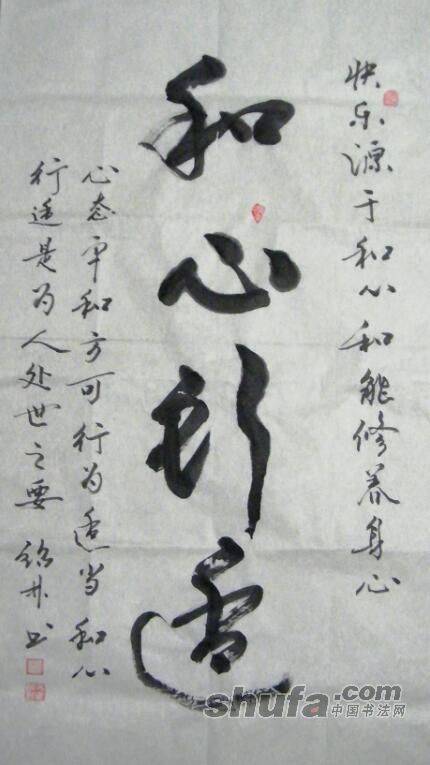 快乐源于和心和能修养身心
和心行适
心态平和方可行为适当 和心
行适是为人处世之要 铭井书
shufa.com
中国书法网